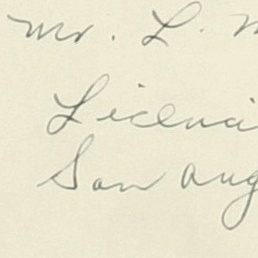 Mr. L. M
Licencia
San Ang